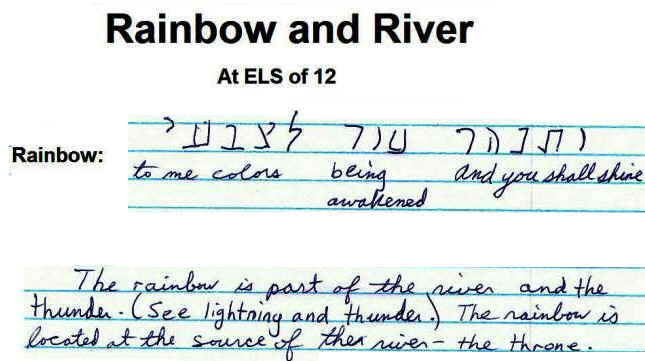 Rainbow and River
At ELS of 12
ותנהר עור לצבעי
Rainbow:
to me colors being And you shall shine
awakened
The rainbow is part of the river and the
thunder. (See lightning and thunder.) The rainbow is
located at the source of the river - the throne.